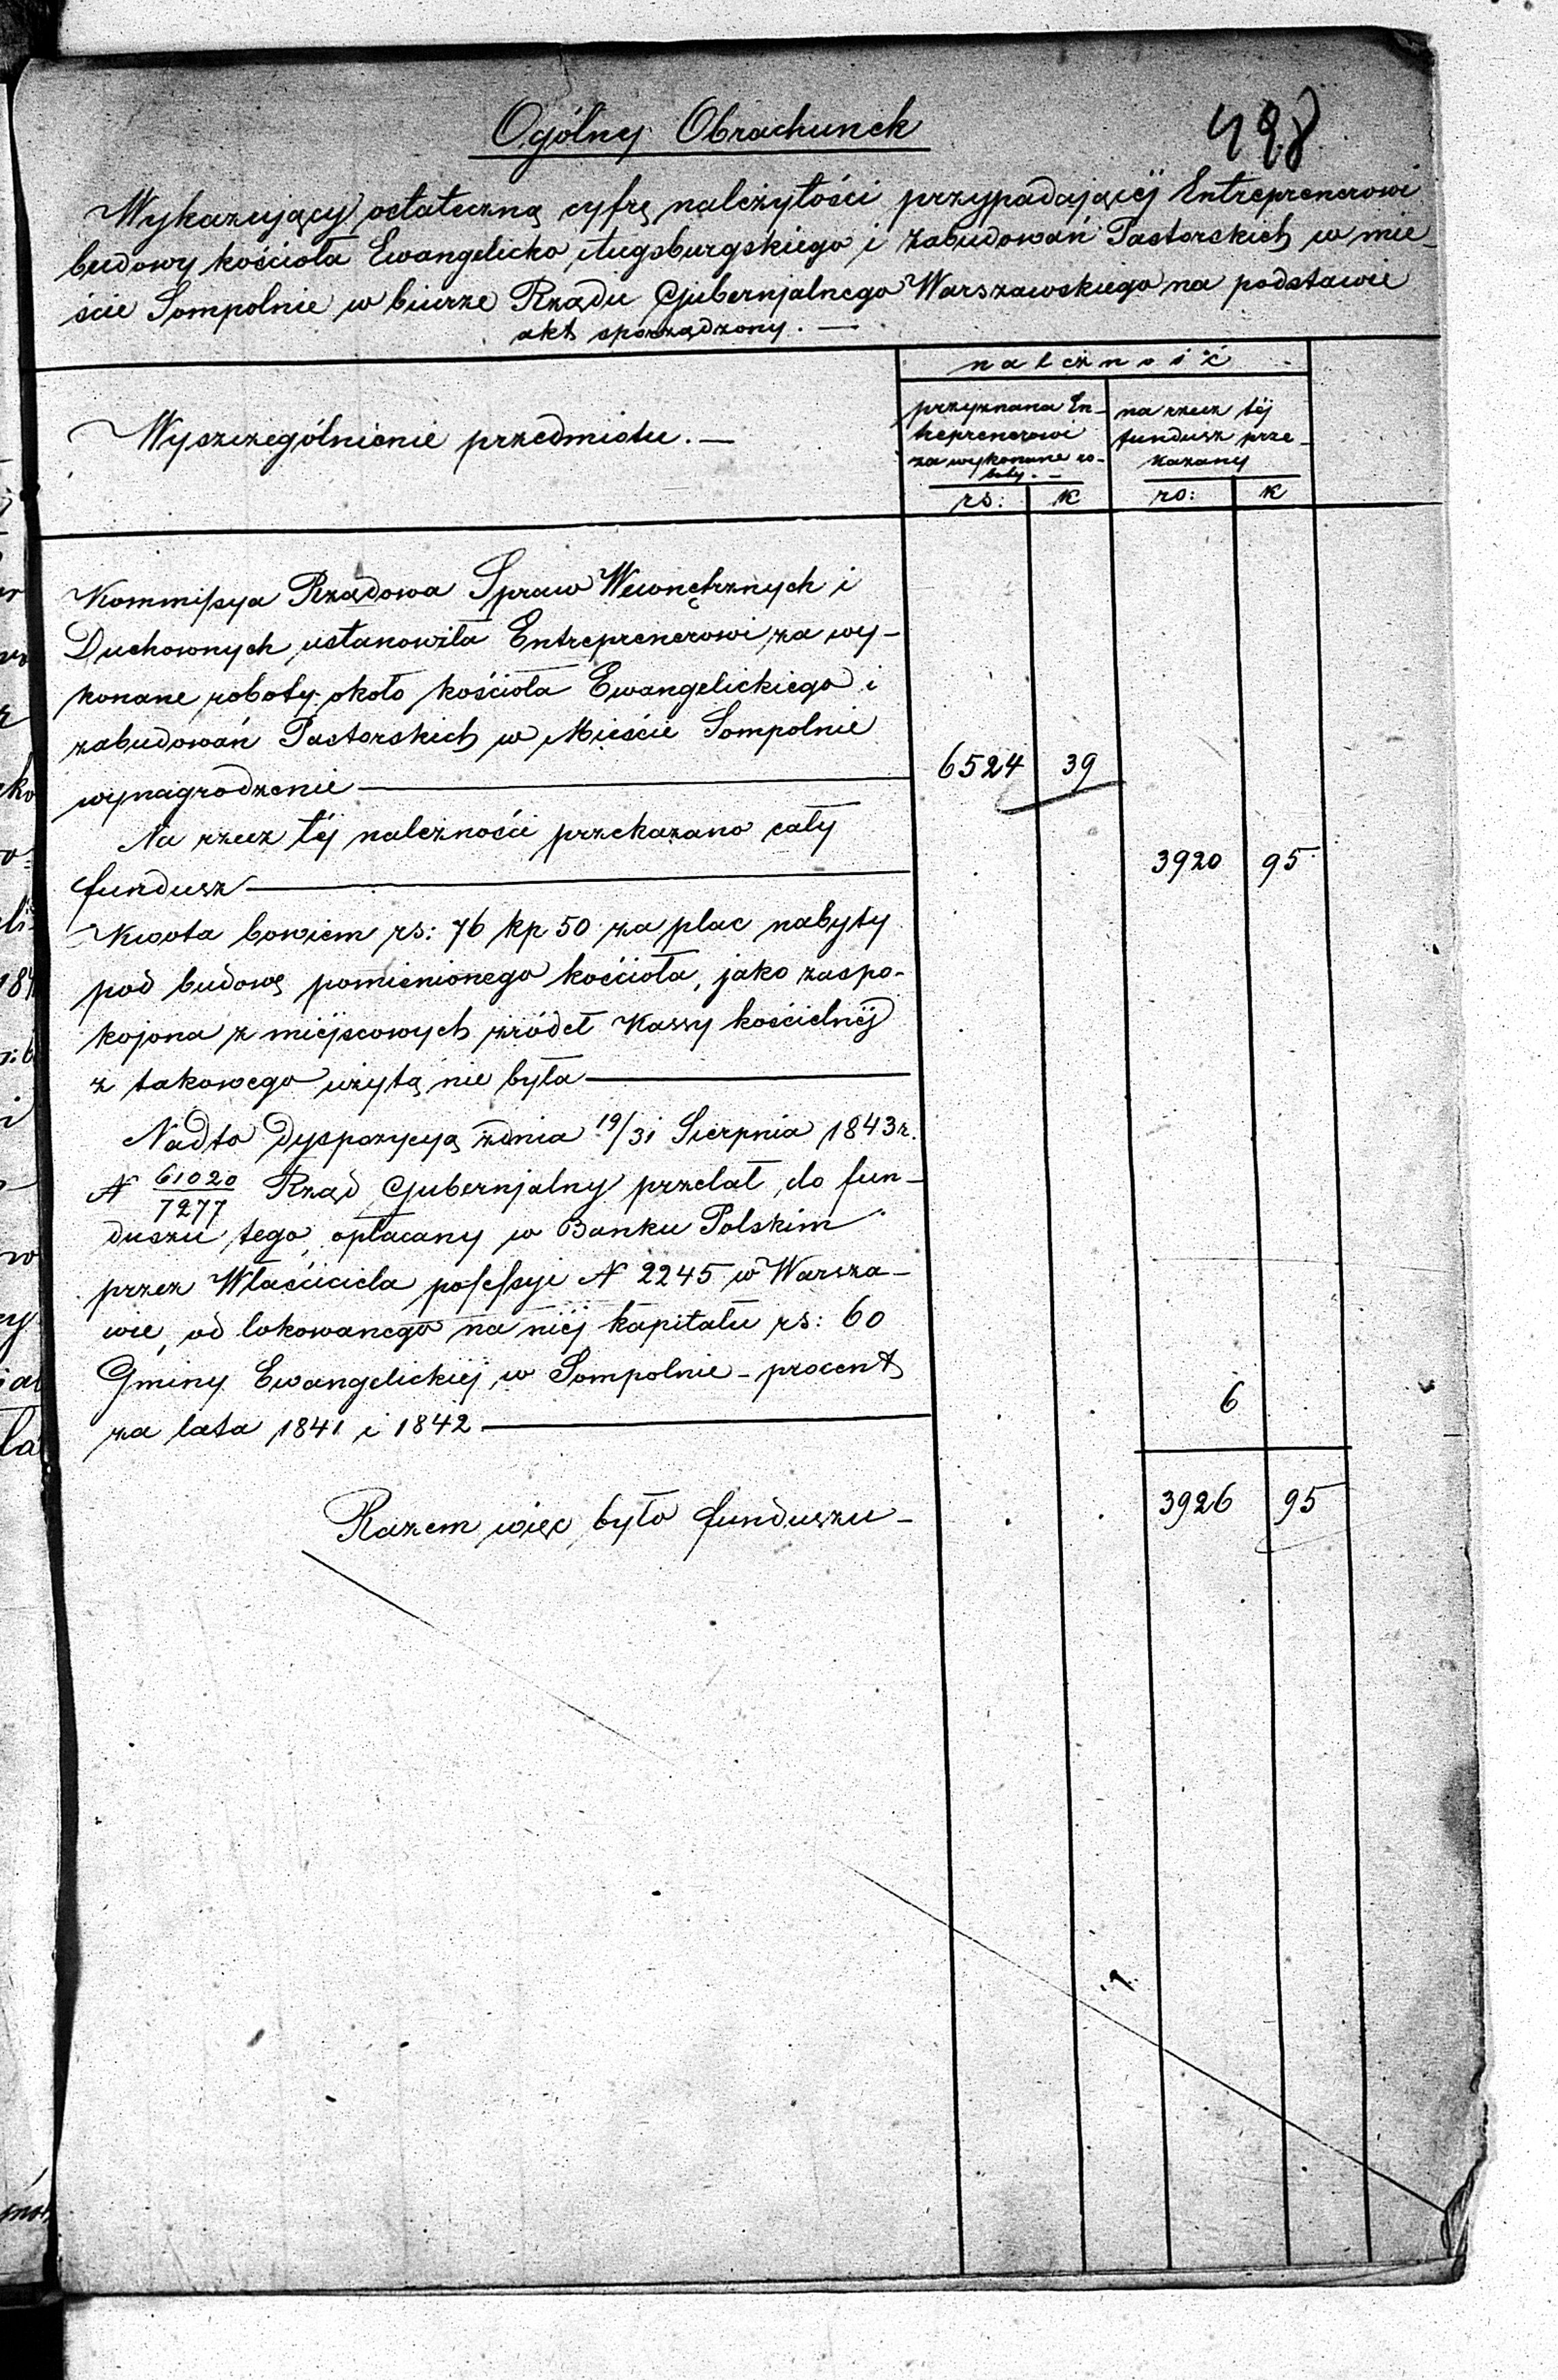 498
Ogólny Obrachunek
Wykazujący ostateczną cyfrę należytości przypadającéj Entreprenerowi
budowy kościoła Ewangelicko Augsburgskiego i zabudowań Pastorskich w mie-
ście Sompolnie w biurze Rządu Gubernjalnego Warszawskiego na podstawie
akt sporządzony. —
należność
Wyszczególnienie przedmiotu. —
przyznana En-
treprenerowi
za wykonane ro-
boty. —
na rzecz téj
fundusz prze-
kazany
rs: k rs: k
Kommissya Rządowa Spraw Wewnętrznych i
Duchownych ustanowiła Entreprenerowi za wy-
konane roboty około kościoła Ewangelickiego i
zabudowań Pastorskich w Mieście Sompolnie
wynagrodzenie — 6524 39
Na rzecz téj należności przekazano cały
fundusz — 3920 95
Kwota bowiem rs: 76 kp 50 za plac nabyty
pod budowę pomienionego kościoła, jako zaspo-
kojona z miéjscowych źródeł Kassy kościelnéj
z takowego użytą nie była —
Nadto dyspozycyą z dnia 19/31 Sierpnia 1843 r.
N 61020/7277 Rząd Gubernjalny przelał do fun-
duszu tego, opłacany w Banku Polskim
przez Właściciela possessyi N 2245 w Warsza-
wie, od lokowanego na niéj kapitału rs: 60
Gminy Ewangelickiéj w Sompolnie - procent
za lata 1841 i 1842 — 6
Razem więc było funduszu - 3926 95